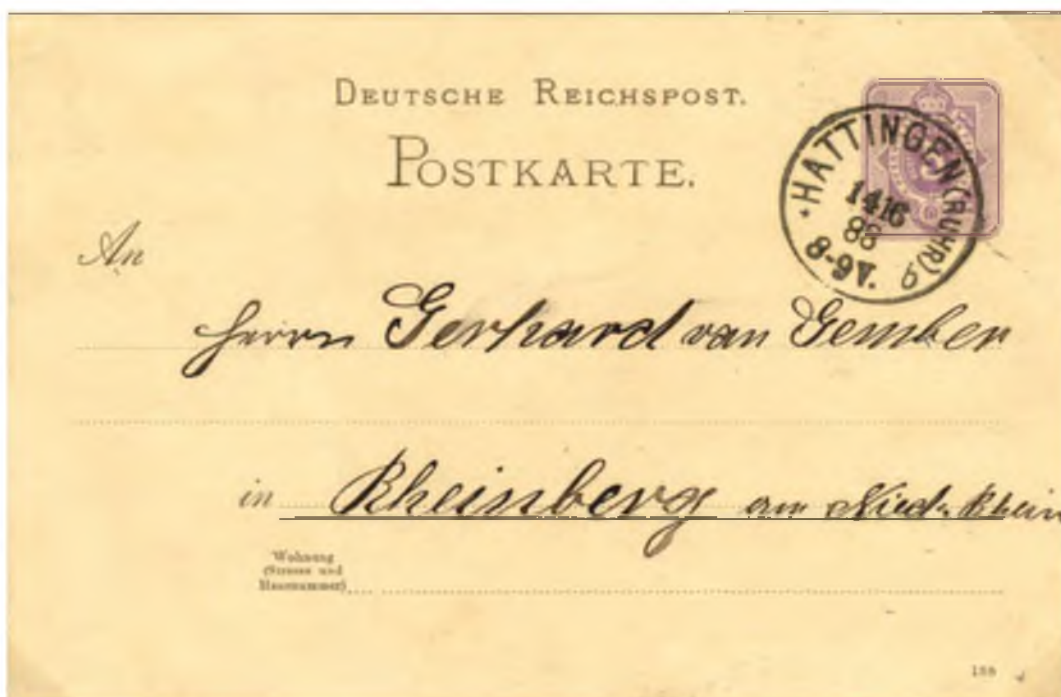 DEUTSCHE REICHSPOST.
POSTKARTE.
HATTINGEN (RUHR)
14 6
88
8-9V.
An
Herrn Gerhard van Gember
in Rheinberg am Nied. Rhein
Wohnung
(Strasse und
Hausnummer)